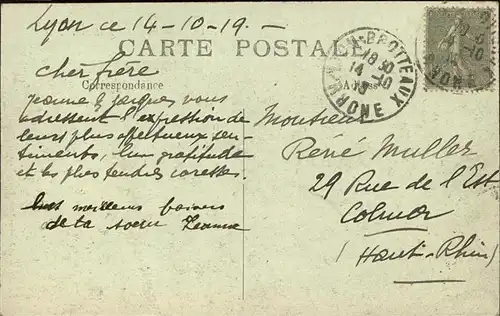 Lyon ce 14-10-19-
CARTE POSTALE
Correspondance
cher frère
Jeanne & Jacques vous
adressent l'expression de
leurs plus affectueux sen-
timents, leur gratitude
et les plus tendres caresses.
meilleurs baisers
de ta soeur Jeanne
LYON-BROTTEAUX
18 30
14 - 10
19
RHONE
Monsieur
René Muller
29 Rue de l'Est
Colmar
(Haut-Rhin)